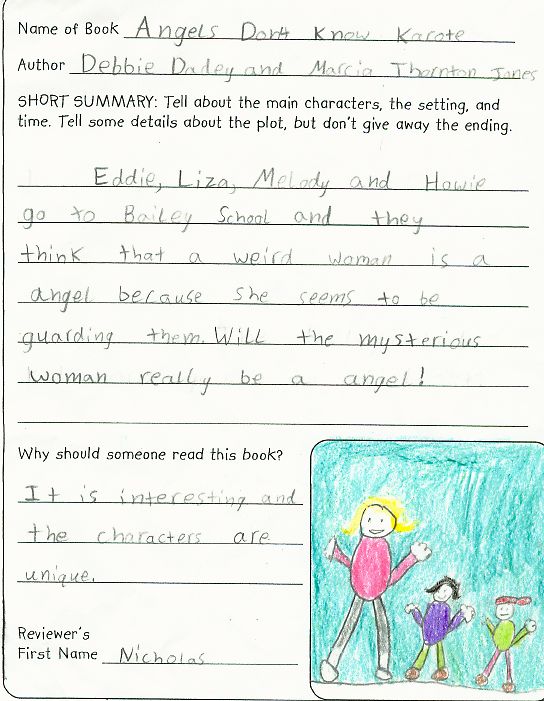 Name of Book Angels Don't Know Karate
Author Debbie Dadey and Marcia Thornton Jones
SHORT SUMMARY: Tell about the main characters, the setting, and
time. Tell some details about the plot, but don't give away the ending.
Eddie, Liza, Melody and Howie
go to Bailey School and they
think that a weird woman is a
angel because she seems to be
guarding them. Will the mysterious
woman really be a angel!
Why should someone read this book?
It is interesting and
the characters are
unique.
Reviewer's
First Name Nicholas